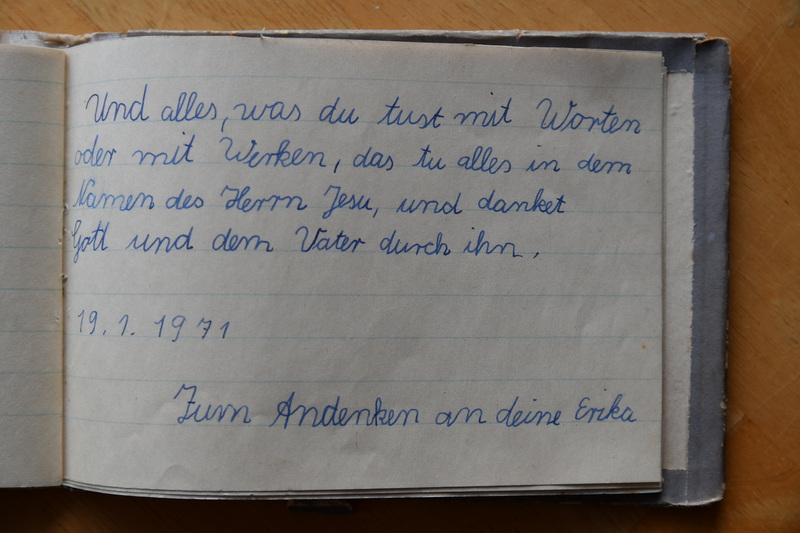 Und alles, was du tust mit Worten
oder mit Werken, das tu alles in dem
Namen des Herrn Jesu, und danket
Gott und dem Vater durch ihn.
19.1.1971
Zum Andenken an deine Erika